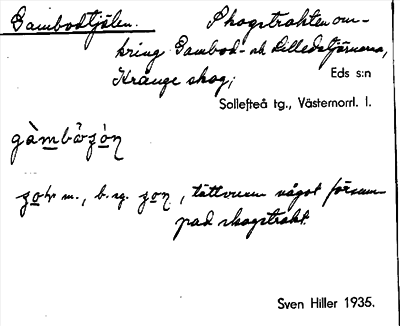 Gambodtjölen. Skogstrakten om-
kring Gambod- och Lilledstjärnarna,
Krånge skog; Eds s:n
Sollefteå tg., Västernorrl. l.
gàmbɷ̀ʒòn
m., b. sg. ʒon, tättvuxen något försum-
pad skogstrakt.
Sven Hiller 1935.